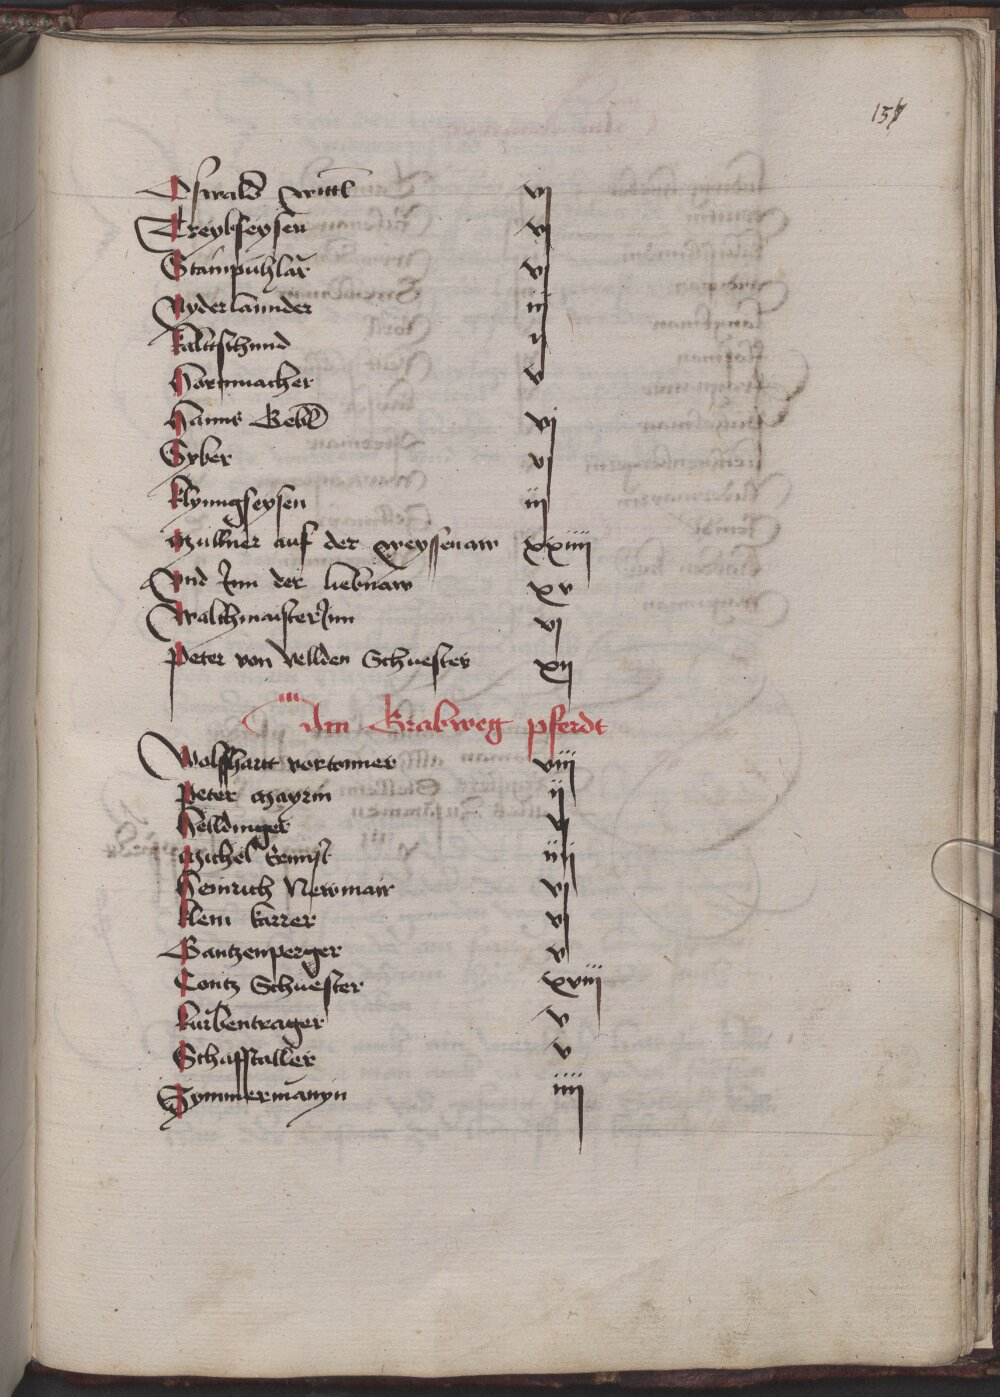 157
Oswald wittl vj
Treybseysen vj
Stainpuhlär vj
Nyderlannder iij
kaltschmid ij
Hornmacher v
Hanns Beckh vj
Gyber vj
klyngseysen iij
Mullner auf der weyssenaw xxiiij
Vnd Inn der liebnaw xv
WalchmaisterInn vj
Peter von Vellden Schuester xij
Am Grabweg pferdt
Wolffhartt vortonner viij
Peter Mayrin ij
Helldinger v
Michel iiij
Heinrich Newmair vj
klein karrer vj
Gantzenperger v
Contz Schuester xviij
kürbentrager v
Schaffstaller v
Zymmermänyn iiij